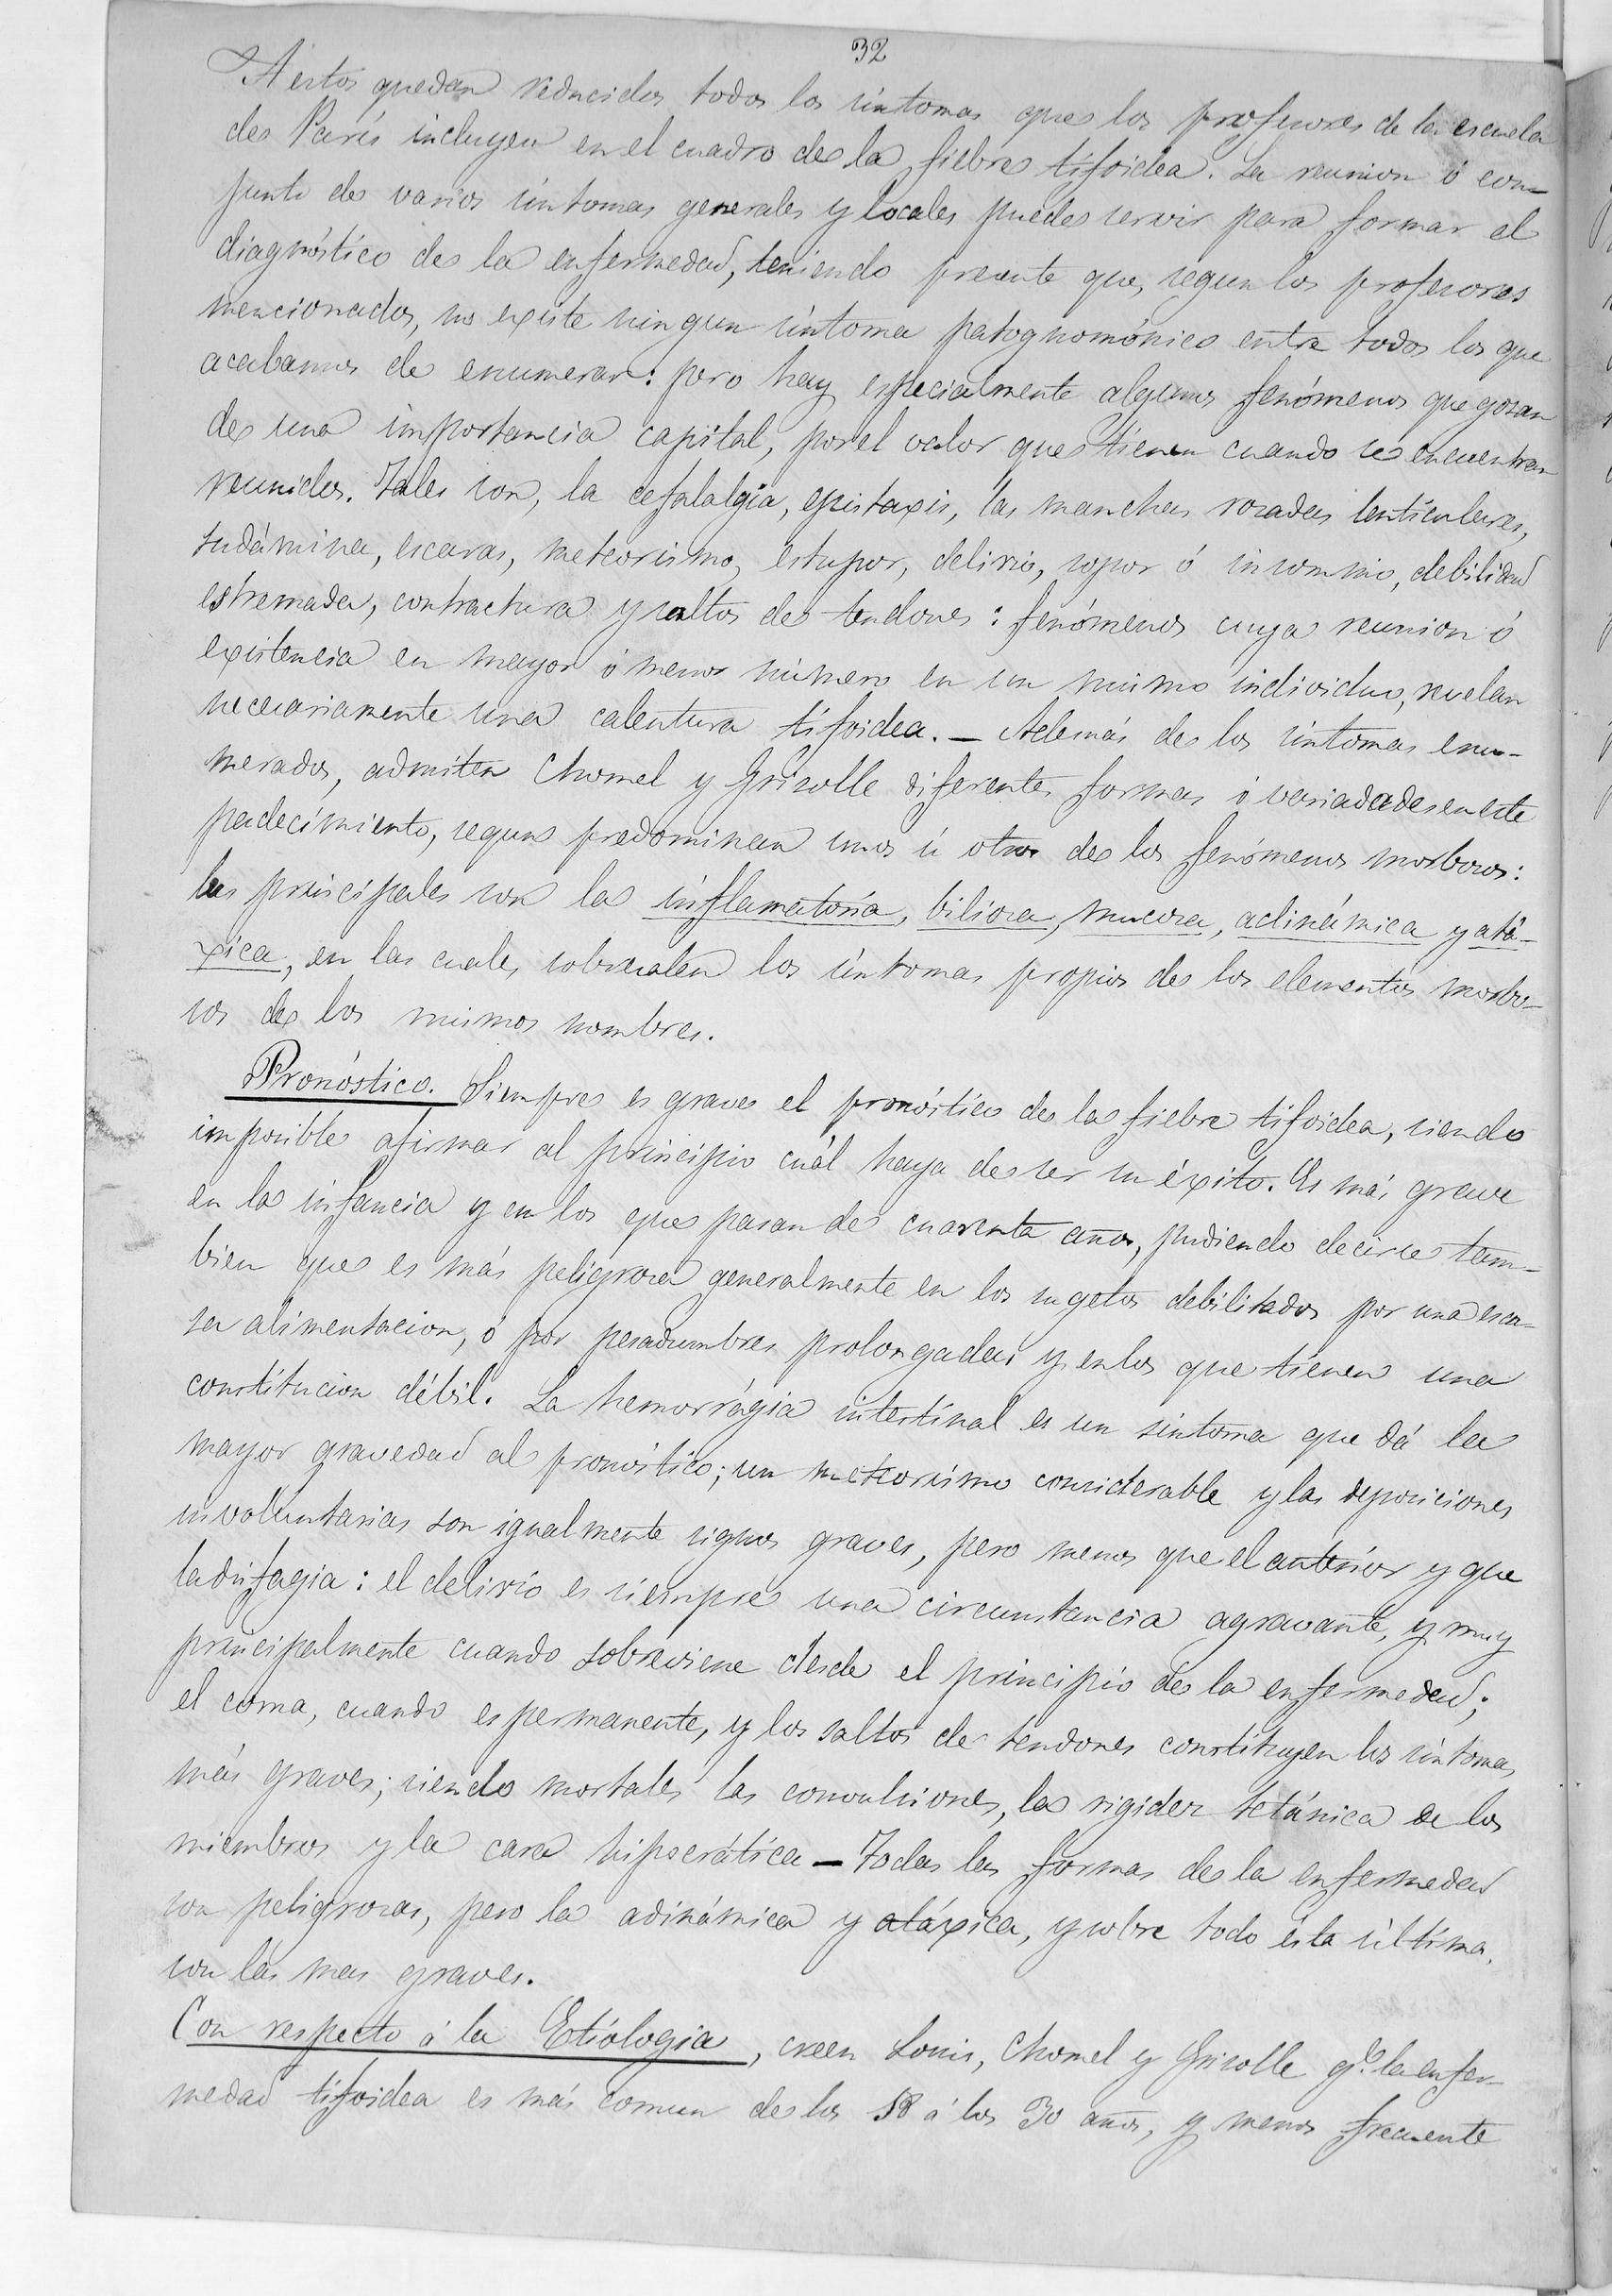 32
A estos quedan reducidos todos los síntomas que los profesores de la escuela
de París incluyen en el cuadro de la fiebre tifoidea. La reunion ó con-
junto de varios síntomas generales y locales puede servir para formar el
diagnóstico de la enfermedad, teniendo presente que, segun los profesores
mencionados, no existe ningun síntoma patognomónico entre todos los que
acabamos de enumerar: pero hay especialmente algunos fenómenos que gozan
de una importancia capital, por el valor que tienen cuando se encuentran
reunidos. Tales son, la cefalalgia, epistaxis, las manchas rosadas lenticulares,
sudámina, escaras, meteorismo, estupor, delirio, sopor ó insomnio, debilidad
estremada, contractura y saltos de tendones: fenómenos cuya reunion ó
existencia en mayor ó menor número en un mismo individuo, revelan
necesariamente una calentura tifoidea. — Además de los síntomas enu-
merados, admiten Chomel y Grisolle diferentes formas ó variadades en este
padecimiento, segun predominan unos ú otros de los fenómenos morbosos:
las principales son la inflamatoria, biliosa, mucosa, adinámica y atá-
xica, en las cuales sobresalen los síntomas propios de los elementos morbo-
sos de los mismos nombres.
Pronóstico. Siempre es grave el pronóstico de la fiebre tifoidea, siendo
imposible afirmar al principio cuál haya de ser su éxito. Es más grave
en la infancia y en los que pasan de cuarenta años, pudiendo decirse tam-
bien que es más peligrosa generalmente en los sugetos debilitados por una esca-
sa alimentacion, ó por pesadumbres prolongadas y en los que tienen una
constitucion débil. La hemorrágia intestinal es un sintoma que dá la
mayor gravedad al pronóstico; un meteorismo considerable y las deposiciones
involuntarias son igualmente signos graves, pero menos que el anterior y que
la disfagia: el delirio es siempre una circunstancia agravante, y muy
principalmente cuando sobreviene desde el principio de la enfermedad;
el coma, cuando es permanente, y los saltos de tendones constituyen los síntomas
más graves; siendo mortales las convulsiones, la rigidez tetánica de los
miembros y la cara hipocrática — Todas las formas de la enfermedad
son peligrosas, pero la adinámica y atáxica, y sobre todo ésta última,
son las mas graves.
Con respecto á la Etiologia, creen Louis, Chomel y Grisolle qe. la enfer-
medad tifoidea es más comun de los 18 á los 30 años, y menos frecuente